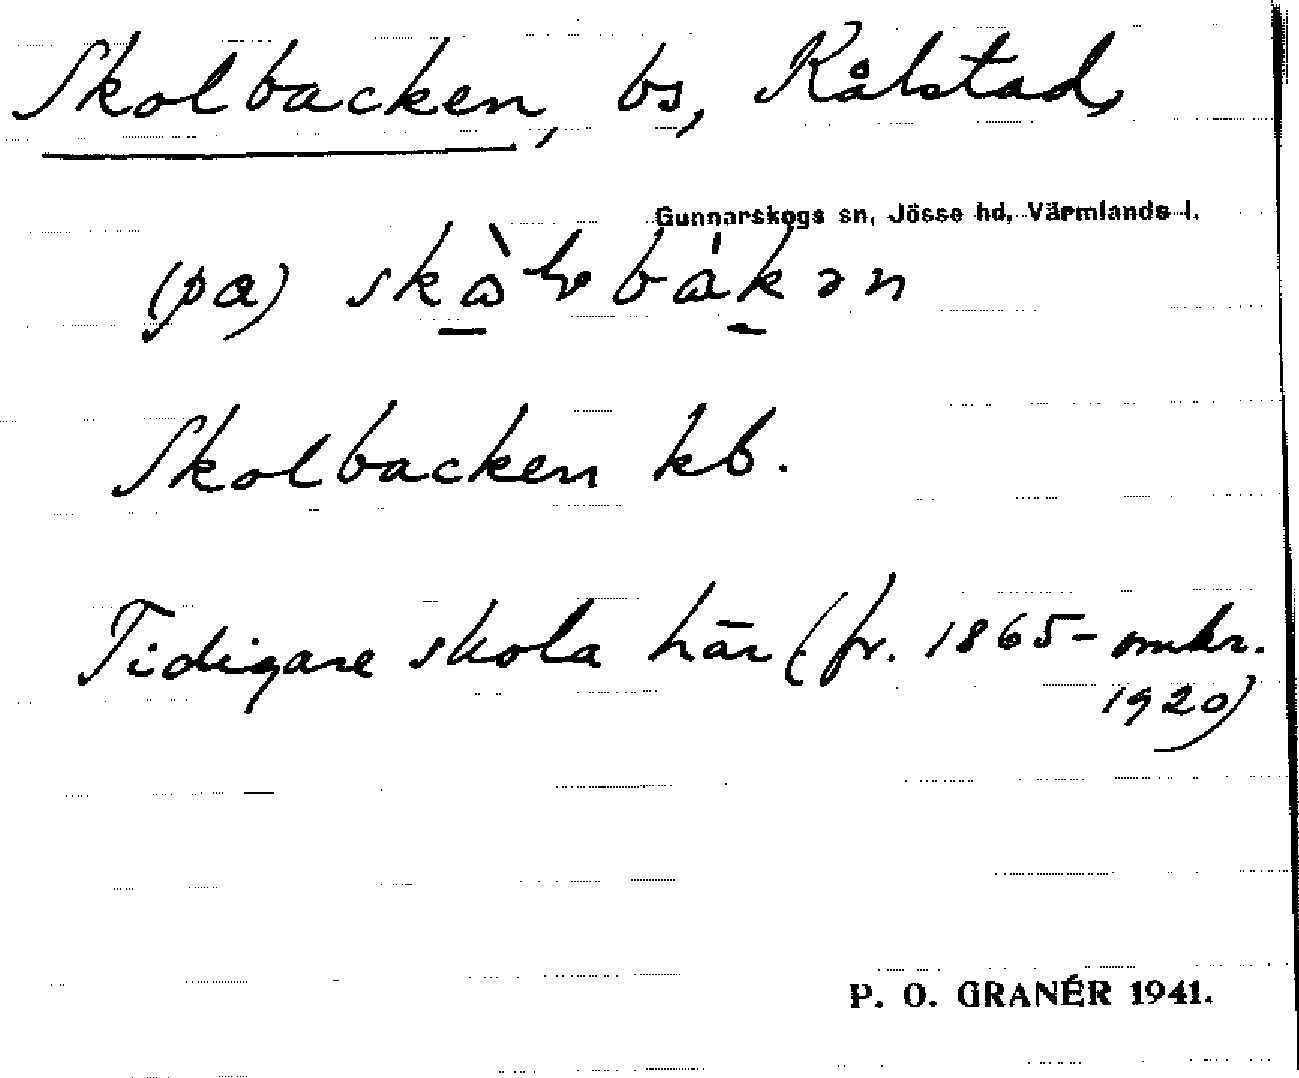 Skolbacken, bs, Kålstad,
Gunnarskogs sn, Jösse hd, Värmlands l.
(pa)
Skolbacken kb.
Tidigare skola här (fr. 1865- omkr.
1920)
P. O. GRANÉR 1941.